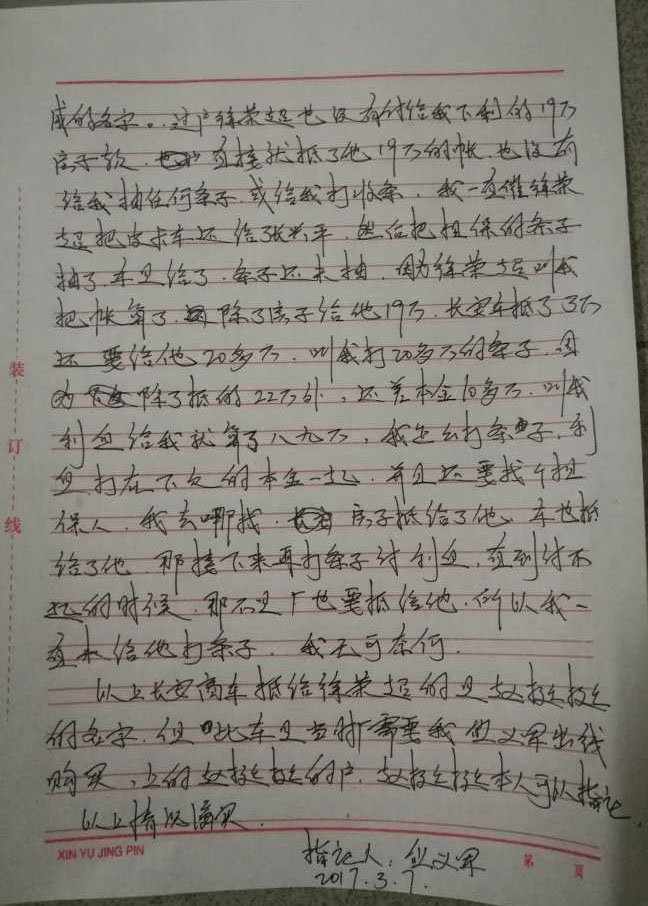 成的名字。过户徐荣超也没有付给我下剩的19万
房子款.直接就抵了他19万的帐.也没有
给我抽任何条子.或给我打收条.我一直催徐荣
超把皮卡车还给张兴平.然后把担保的条子
抽了.车是给了.条子还未抽.因为徐荣超叫我
把帐算了.除了房子给他19万.长安车抵了3万
还要给他20多万.叫我打20多万的条子.因
为除了抵的22万外,还差本金10多万.叫我
利息给我就算了八九万,我还去打条子.利
息打在下欠的本金一起.并且还要找个担
保人.我去哪找.房子抵给了他.车也抵
给了他.那接下来再打条子付利息.直到付不
起的时候.那不是厂也要抵给他.所以我一
直未给他打条子.我无可奈何.
以上长安商车抵给徐荣超的是赵
的名字.但此车是当时厂需要我 义军出钱
购买,上的赵 的户.赵 本人可以指证.
以上情况属实.
指证人: 义军
2017.3.7.
装
订
线
XIN YU JING PIN
第 頁